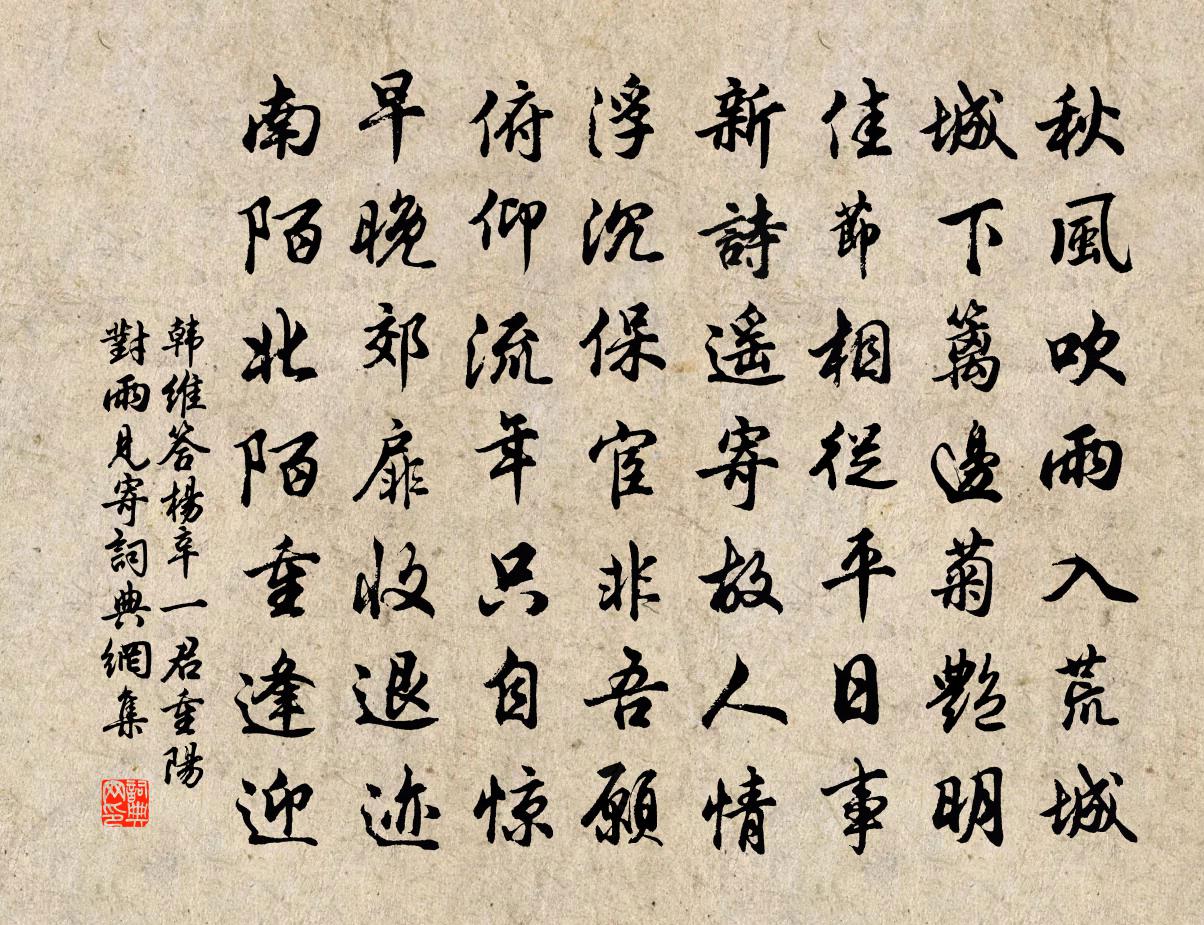 秋風吹雨入荒城
城下籬邊菊艷明
佳節相從平日事
新詩遥寄故人情
浮沉保宦非吾願
俯仰流年只自惊
早晚郊扉收退迹
南陌北陌重逢迎
韩維答楊卒一君重陽
對雨見寄詞典網集
詞典网印